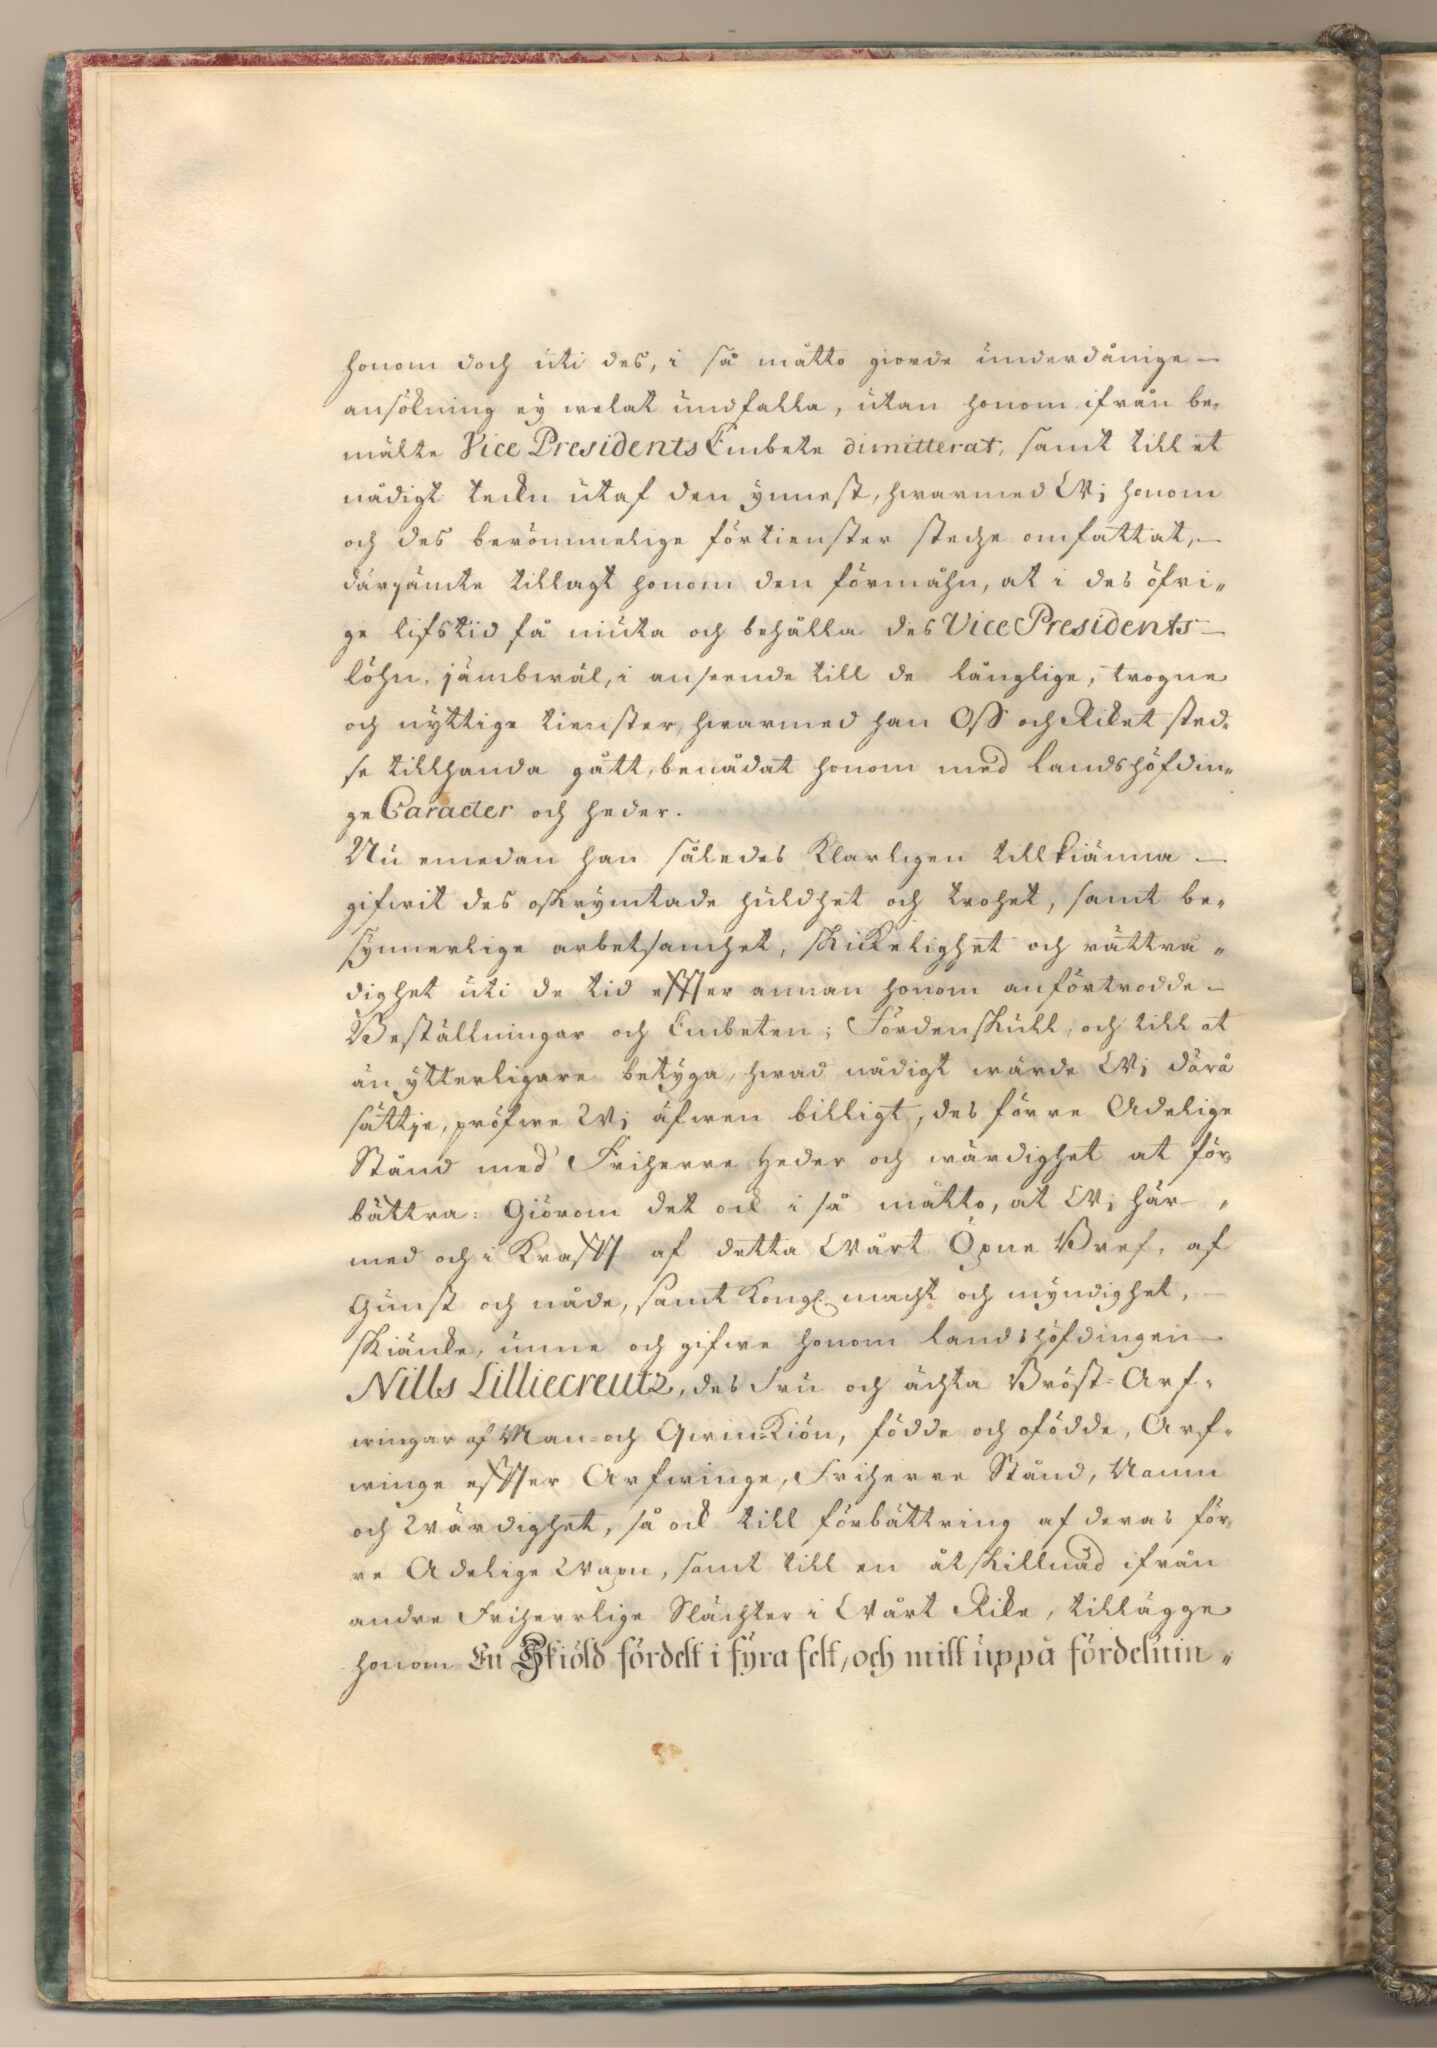 honom doch uti des, i så måtto giorde underdånige —
ansökning ey welat undfalla, utan honom ifrån be-
mälte Vice Presidents Embete dimitterat, samt till et
nådigt teckn utaf den ynnest, hwarmed Wi honom
och des berömmelige förtienster stedze omfattat, —
därjämte tillagt honom den förmåhn, at i des öfri-
ge lifstid få niuta och behålla des Vice Presidents —
löhn, jämbwäl, i anseende till de långlige, trogne
och nyttige tienster, hwarmed han Oss och Riket sted-
se tillhanda gått, benådat honom med Landshöfdin-
ge Caracter och heder.
Nu emedan han således klarligen tillkiänna —
gifwit des oskrymtade huldhet och trohet, samt be-
synnerlige arbetsamhet, skickelighet och rättrå-
dighet uti de tid effter annan honom anförtrodde —
Beställningar och Embeten; Fördenskull, och till at
än ytterligare betyga, hwad nådigt wärde Wi därå
sättje, pröfwe Wi äfwen billigt, des förre Adelige
Stånd med Friherre Heder och wärdighet at för-
bättra: Giörom det ock i så måtto, at Wi här-
med och i Krafft af detta Wårt Öpne Bref, af
Gunst och nåde, samt Kongl. macht och myndighet, —
skiänke, unne och gifwe honom Landshöfdingen —
Nills Lilliecreutz, des Fru och ächta Bröst-Arf-
wingar af Man- och Qwin-Kiön, födde och ofödde, Arf-
winge effter Arfwinge, Friherre Stånd, Namn
och Wärdighet, så ock till förbättring af deras för-
re Adelige Wapn, samt till en åtskillnad ifrån
andre Friherrlige Slächter i Wårt Rike, tillägge
honom En Skiöld fördelt i fyra felt, och mitt uppå fördelnin-